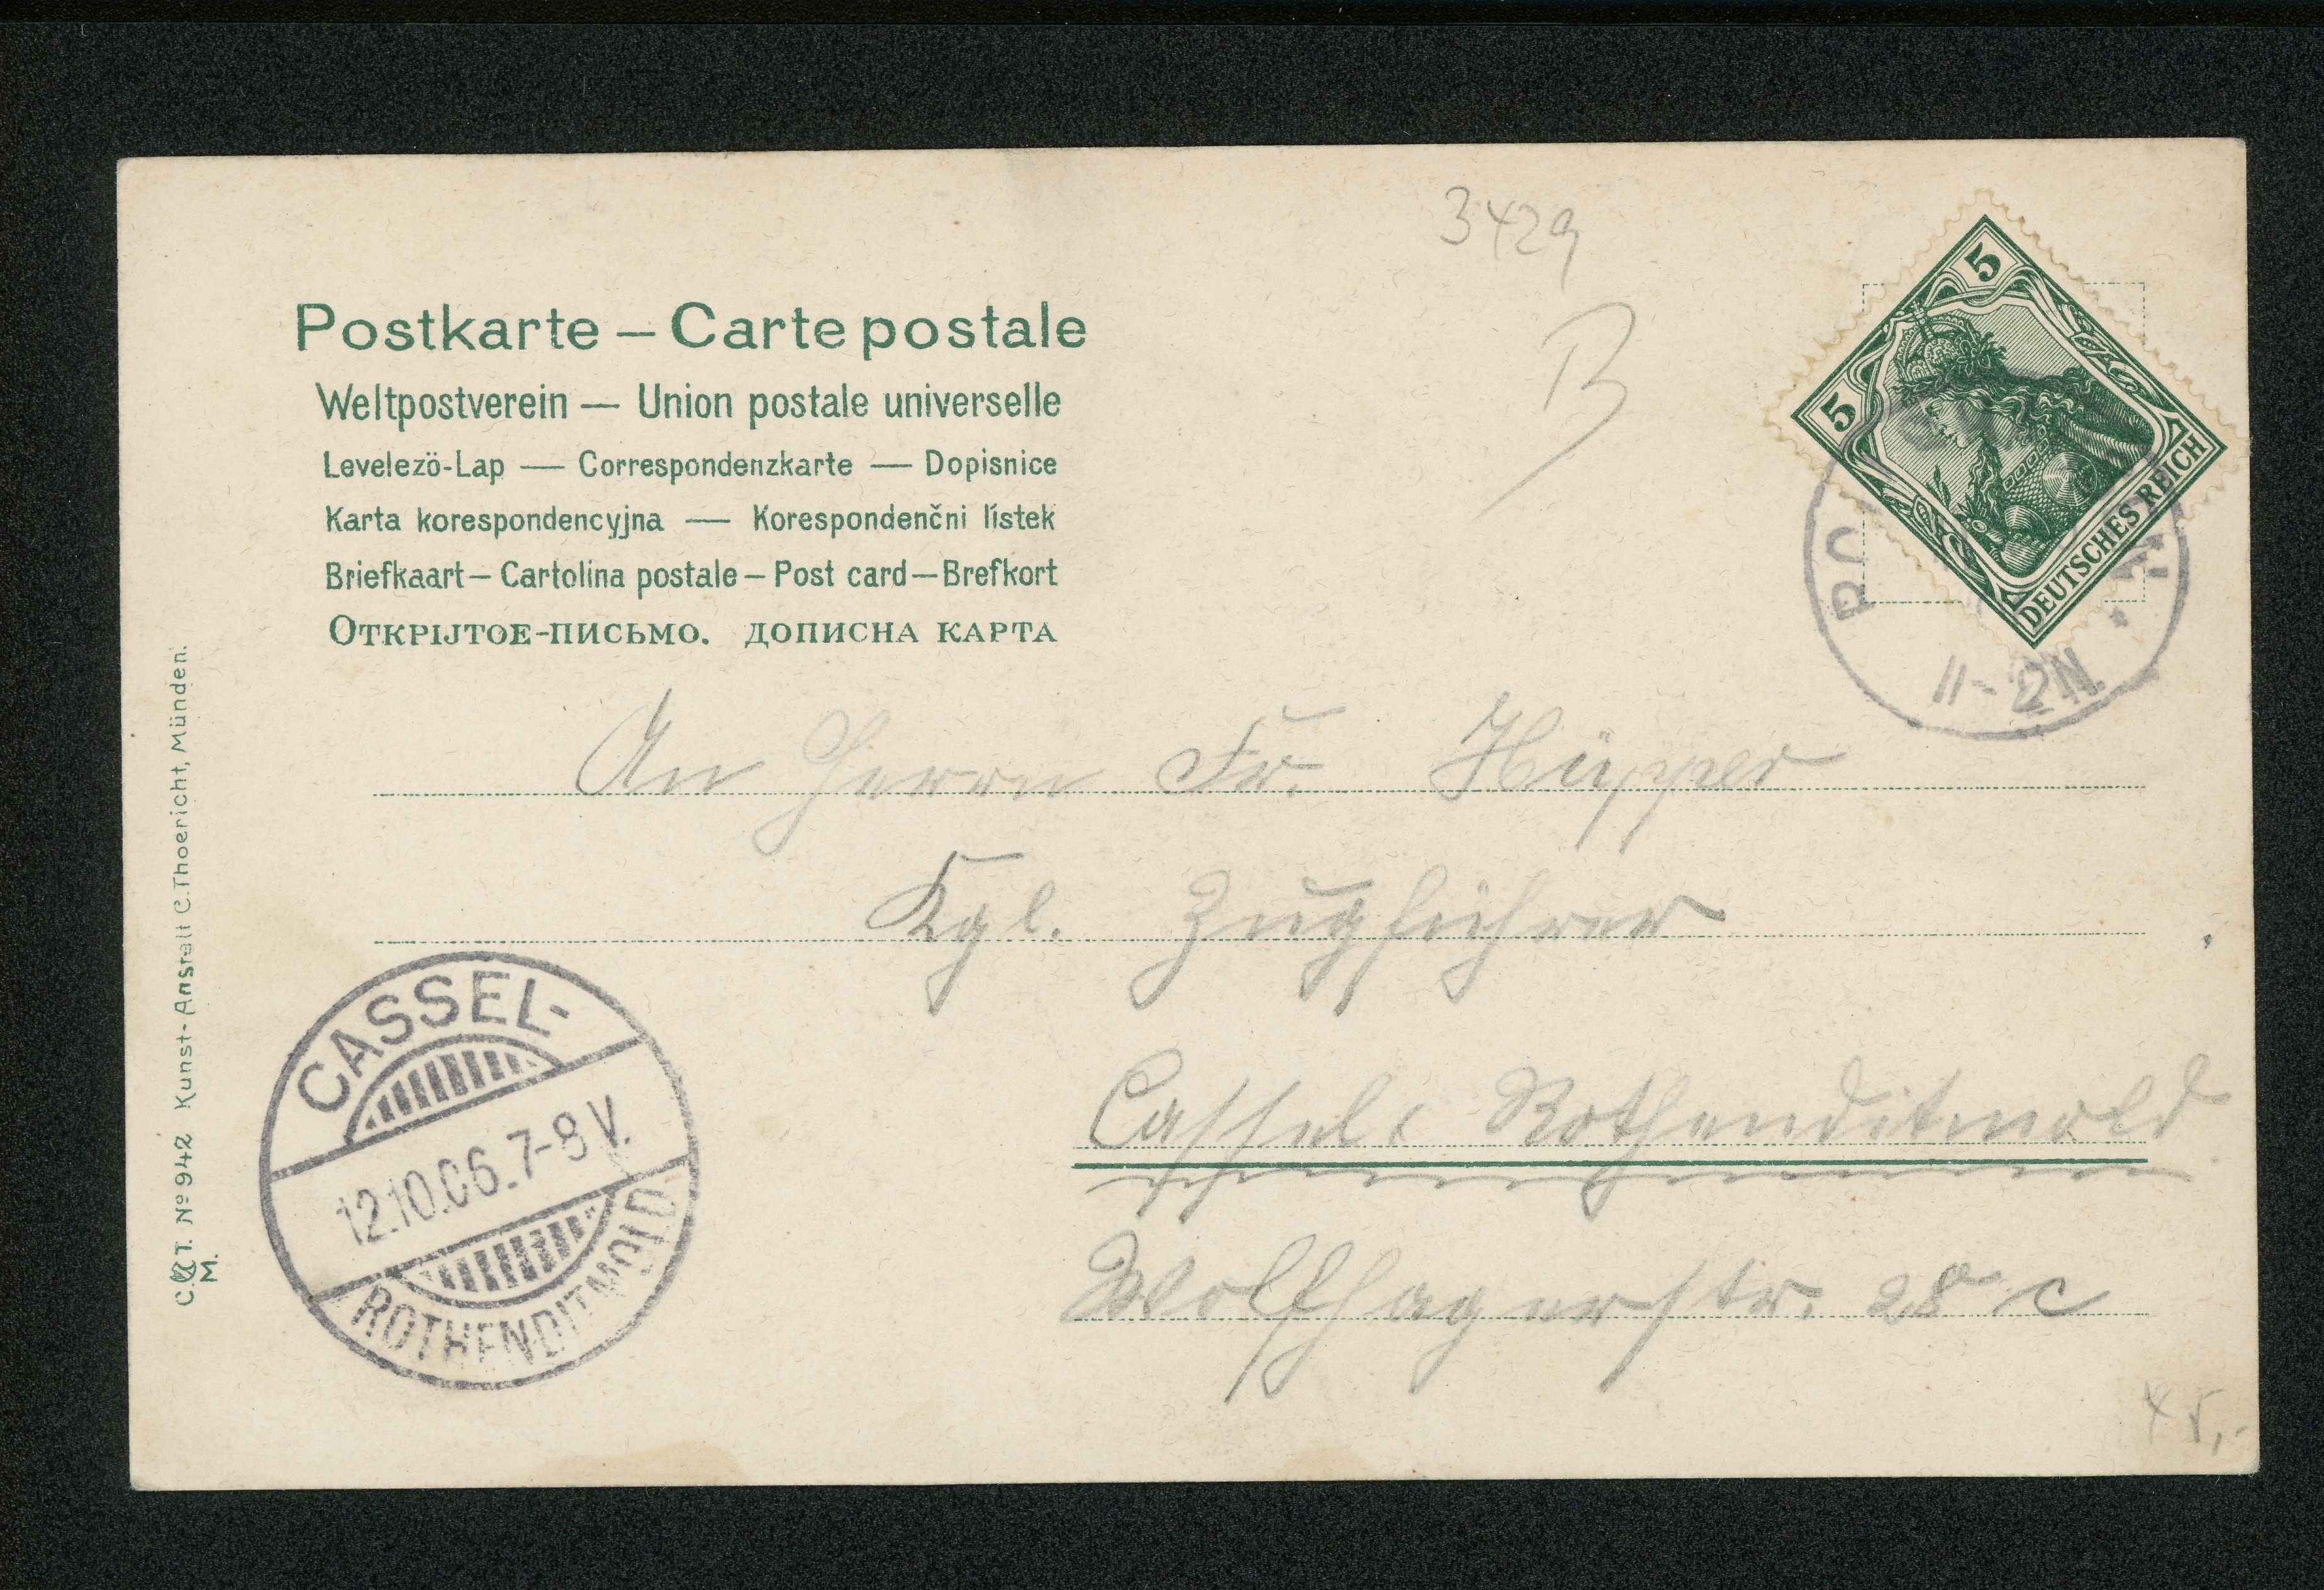 3429
B
Postkarte – Carte postale
Weltpostverein — Union postale universelle
Levelezö-Lap — Correspondenzkarte — Dopisnice
Karta korespondencyjna — Korespondenčni lístek
Briefkaart – Cartolina postale – Post card – Brefkort
Откріјтое-письмо. дописна карта
5
5
DEUTSCHES REICH
11-12N.
An Herrn Fr. Hüpper
Kgl. Zugführer
Cassel-Rothenditmold
Wolfhagerstr. 28 c
45,-
CASSEL-
12.10.06.7-8 V.
ROTHENDITMOLD
C. T. Nº 942 Kunst-Anstalt C. Thoericht, Münden.
M.